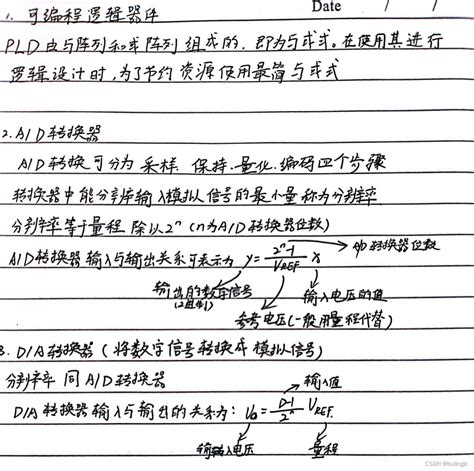 Date / /
1. 可编程逻辑器件
PLD由与阵列和或阵列组成的,即为与或式。在使用其进行
逻辑设计时,为了节约资源使用最简与或式
2. A/D转换器
A/D转换可分为采样、保持、量化、编码四个步骤
转换器中能分辨输入模拟信号的最小量称为分辨率
分辨率等于量程除以2ⁿ(n为A/D转换器位数)
A/D转换器输入与输出关系可表示为 y = (2ⁿ-1)/V_REF x → A/D转换器位数
输出的数字信号(2进制) 输入电压的值
参考电压(一般用量程代替)
3. D/A转换器(将数字信号转换成模拟信号)
分辨率同A/D转换器
输入值
D/A转换器输入与输出的关系为: U₀ = (D-1)/2ⁿ V_REF.
电压 量程
CSDN @budingjz